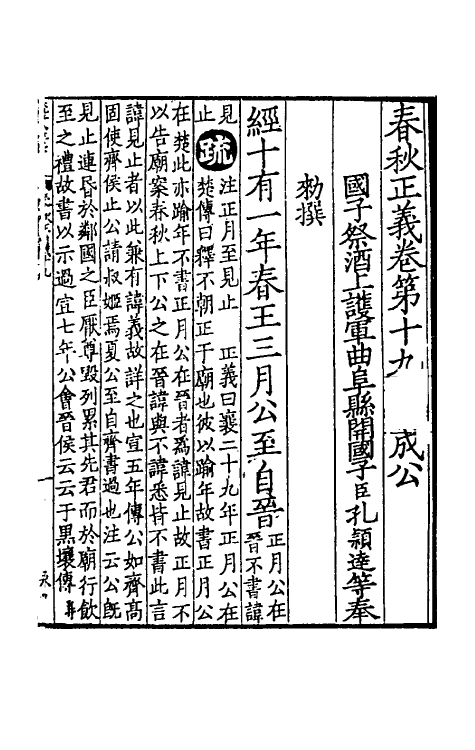 春秋正義卷第十九 成公
國子祭酒上護軍曲阜縣開國子臣孔穎達等奉
勑撰
經十有一年春王三月公至自晉正月公在
晉不書諱
見止疏注正月至見止 正義曰襄二十九年正月公在
楚傳曰釋不朝正于廟也彼以踰年故書正月公
在楚此亦踰年不書正月公在晉者爲諱見止故正月不
以告廟案春秋上下公之在晉諱與不諱悉皆不書此言
諱見止者以此兼有諱義故詳之也宣五年傳公如齊高
固使齊侯止公請叔姬焉夏公至自齊書過也注云公旣
見止連昏於鄰國之臣厭尊毀列累其先君而於廟行飲
至之禮故書以示過宣七年公會晉侯云云于黒壤傳